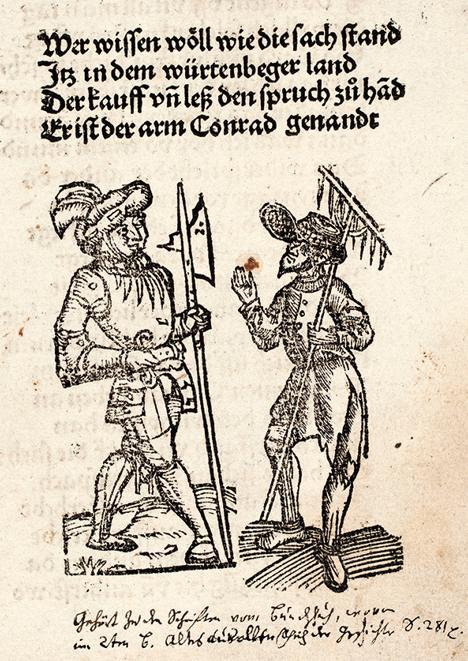 Wer wissen wöll wie die sach stand
Jtz in dem würtenbeger land
Der kauff vñ leß den spruch zů hãd
Er ist der arm Conrad genandt
Gehört zu den Schriften vom Bundschuh,
im 2ten B. S. 281